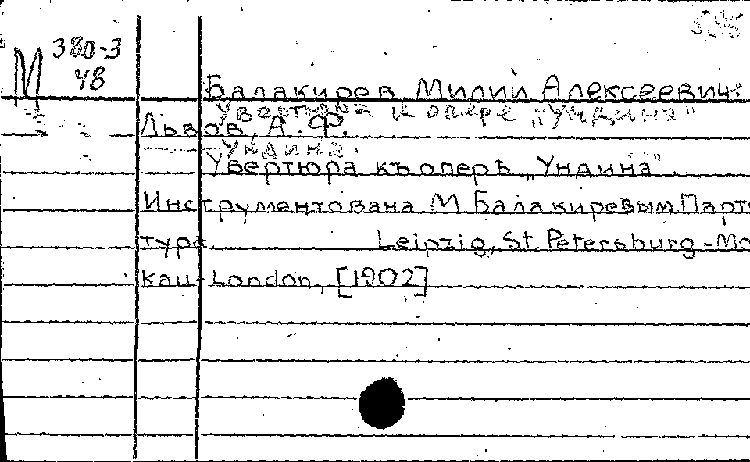 М 380-3
48
Балакирев Милий Алексеевич:
Увертюра к опере „Ундина"
Львов, А. Ф.
Ундина.
Увертюра къ оперѣ „Ундина".
Инструментована М Балакиревым Парти
тура. Leipzig, St Petersburg - Mo
kau-London, [1902]